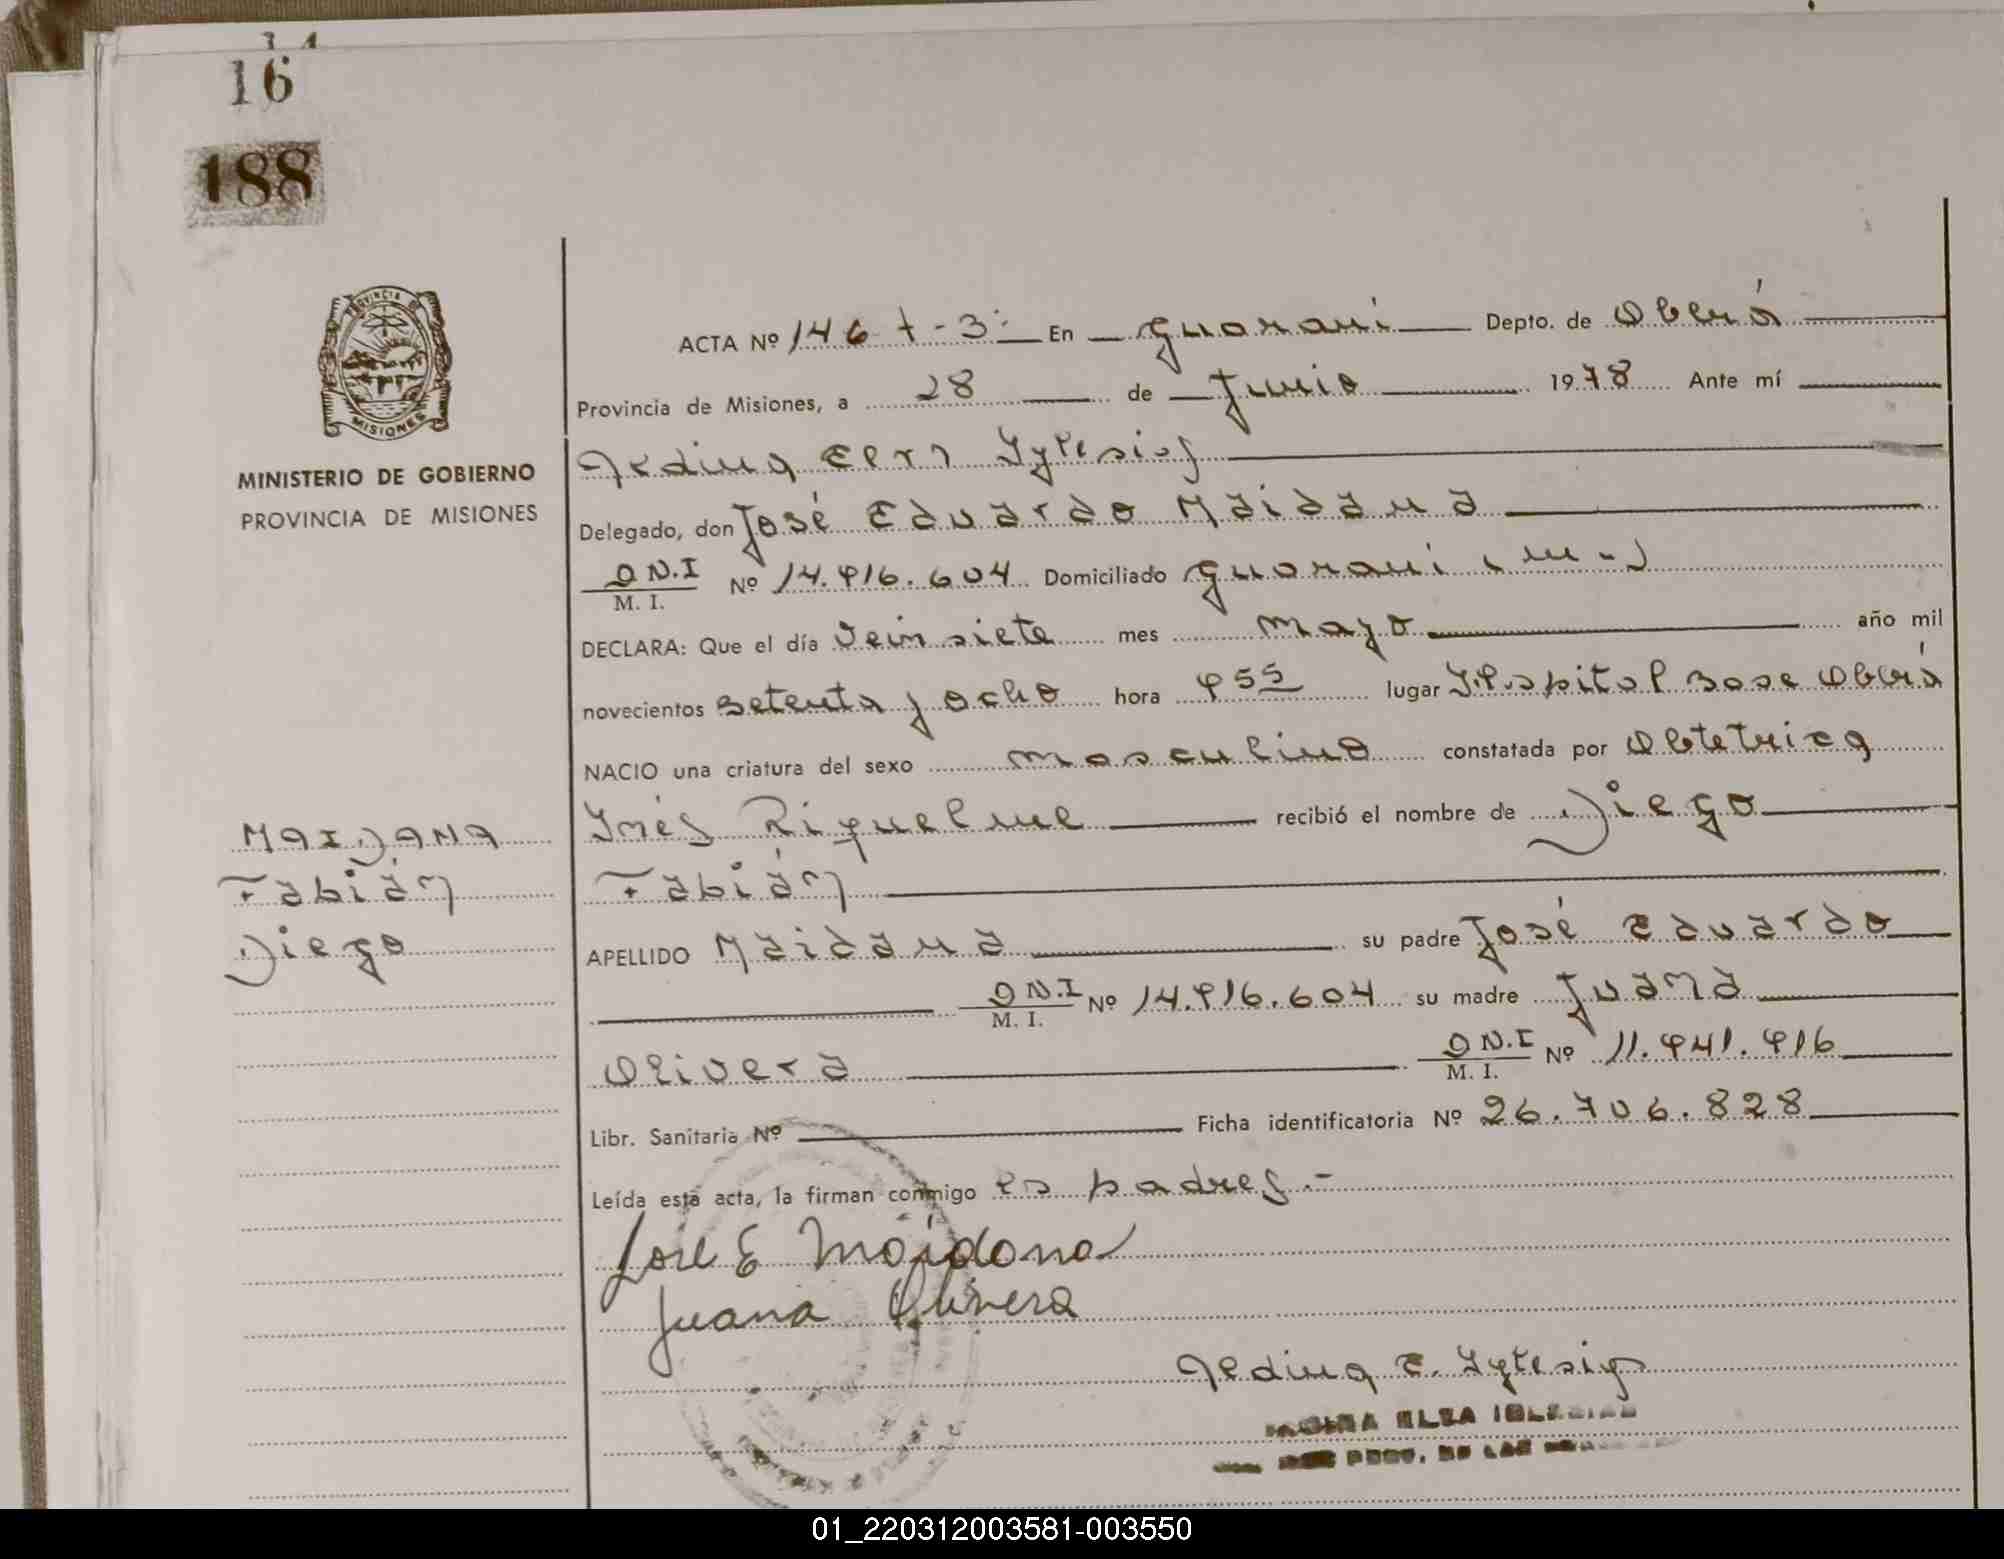 16
188
PROVINCIA DE
MISIONES
MINISTERIO DE GOBIERNO
PROVINCIA DE MISIONES
ACTA Nº 146 t-3: En Guaraní Depto. de Oberá
Provincia de Misiones, a 28 de Junio 1978 Ante mí
Iglesias
Delegado, don José Eduardo Maidana
D N.I M. I. Nº 14.916.604 Domiciliado Guaraní
DECLARA: Que el día Veinsiete mes mayo año mil
novecientos setenta y ocho hora 955 lugar Hospital Base Oberá
NACIO una criatura del sexo masculino constatada por Obtetrica
MAIDANA
Fabián
Diego
Inés Riquelme recibió el nombre de Diego
Fabián
APELLIDO Maidana su padre José Eduardo
D N.I M. I. Nº 14.916.604 su madre Juana
Olivera D N.I M. I. Nº 11.941.916
Libr. Sanitaria Nº Ficha identificatoria Nº 26.706.828
Leída esta acta, la firman conmigo ls padres.-
José E Maidana
Juana Olivera
E. Iglesias
ELSA IGLESIAS
PROV. DE LAS
01_220312003581-003550